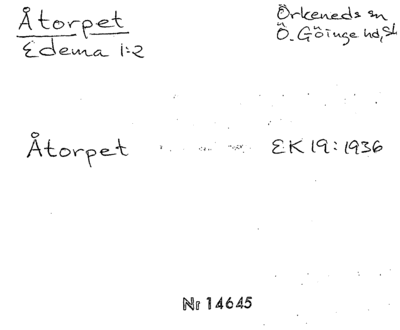 Åtorpet
Edema 1:2
Örkeneds sn
Ö. Göinge hd, Sk
Åtorpet EK 19:1936
Nr 14645